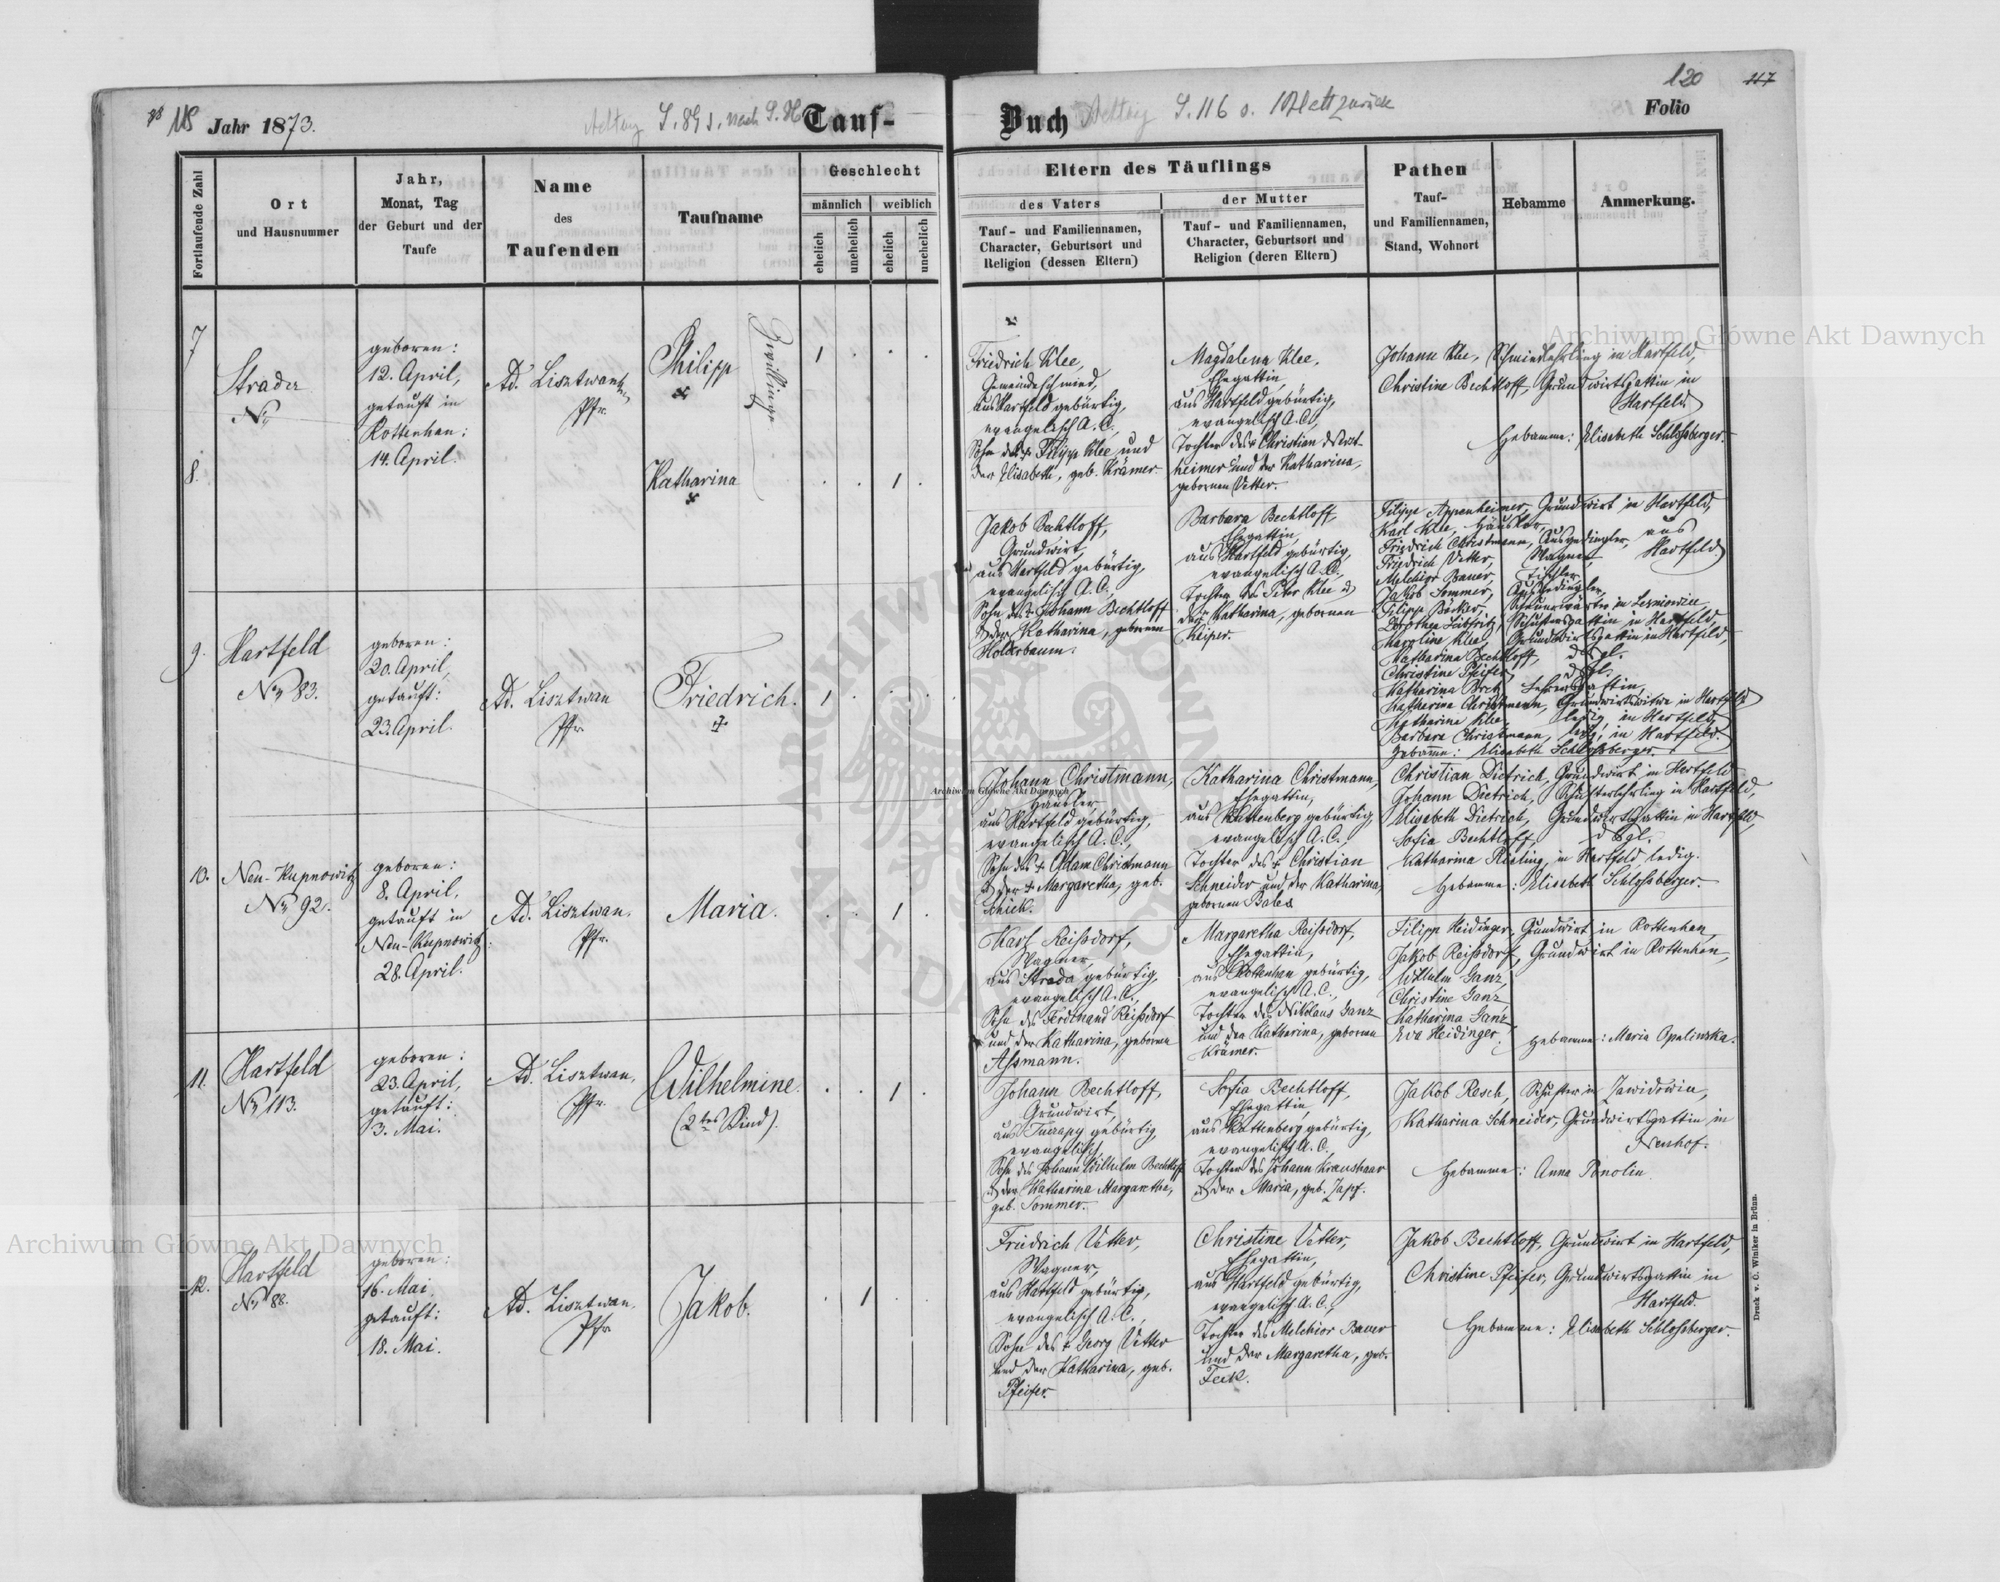 118
Jahr 1873.
S. 89
Tauf-
Buch
S. 116
120
117
Folio
Fortlaufende Zahl
Ort
und Hausnummer
Jahr,
Monat, Tag
der Geburt und der
Taufe
Name
des
Taufenden
Taufname
Geschlecht
männlich
weiblich
ehelich
unehelich
ehelich
unehelich
Eltern des Täuflings
des Vaters
Tauf- und Familiennamen,
Character, Geburtsort und
Religion (dessen Eltern)
der Mutter
Tauf- und Familiennamen,
Character, Geburtsort und
Religion (deren Eltern)
Pathen
Tauf-
und Familiennamen,
Stand, Wohnort
Hebamme
Anmerkung.
7
Strada
No
geboren:
12. April,
getauft in
Rottenhan:
14. April.
Ad. Lisztwan,
Pfr.
Philipp
Zwillinge
1
8.
Katharina
1
Friedrich Klee,
Gemeindeschmied,
aus Hartfeld gebürtig,
evangelisch A. C.,
Sohn des Filipp Klee und
der Elisabeth, geb. Krämer
Magdalena Klee,
Ehegattin,
aus Hartfeld gebürtig,
evangelisch A. C.,
Tochter des Christian
heimer und der Katharina,
gebornen Vetter.
Johann Klee, Schmiedlehrling in Hartfeld,
Christine Bechtloff, Grundwirtsgattin in
Hartfeld.
Hebamme: Elisabeth Schlossberger.
9.
Hartfeld
No 83.
geboren:
20. April,
getauft:
23. April.
Ad. Lisztwan
Pfr.
Friedrich.
1
Jakob Bechtloff,
Grundwirt,
aus Hartfeld gebürtig,
evangelisch A. C.,
Sohn des Johann Bechtloff
u. der Katharina, gebornen
Holderbaum.
Barbara Bechtloff,
Ehegattin,
aus Hartfeld gebürtig,
evangelisch A. C.,
Tochter des Peter Klee u.
der Katharina, gebornen
Keiper.
Filipp Appenheimer, Grundwirt in Hartfeld,
Karl Klee, Häusler,
Friedrich Christmann, Ausgedingler, aus
Friedrich Vetter, Wagner, Hartfeld
Melchior Bauer, Tischler,
Jakob Sommer, Ausgedingler,
Filipp Bäcker, in Lesniowice,
Dorothea Leibfritz, Schustersgattin in Hartfeld,
Karoline Klee, Grundwirtsgattin in Hartfeld,
Katharina Bechtloff, dtgl.
Christine Pfeifer, dtgl.
Katharina Lehrersgattin,
Katharina Christmann, Grundwirtswitwe in Hartfeld
Katharina Klee, ledig, in Hartfeld,
Barbara Christmann, ledig, in Hartfeld.
Hebamme: Elisabeth Schlossberger.
10.
Neu-Kupnowitz
No 92.
geboren:
8. April,
getauft in
Neu-Kupnowitz:
28. April.
Ad. Lisztwan.
Pfr.
Maria.
1
Johann Christmann,
Häusler
aus Hartfeld gebürtig,
evangelisch A. C.,
Sohn des + Adam Christmann
u. der + Margaretha, geb.
Schick.
Katharina Christmann,
Ehegattin,
aus Kattenberg gebürtig,
evangelisch A. C.,
Tochter des + Christian
Schneider und der Katharina,
gebornen Bales
Christian Dietrich, Grundwirt in Hartfeld
Johann Dietrich, Schusterlehrling in Hartfeld,
Elisabeth Dietrich, Grundwirtsgattin in Hartfeld,
Sofia Bechtloff, dtgl.
Katharina Rießling, in Hartfeld ledig.
Hebamme: Elisabeth Schlossberger.
11.
Hartfeld
No 113.
geboren:
23. April,
getauft:
3. Mai.
Ad. Lisztwan,
Pfr.
Wilhelmine.
(2tes Kind).
1
Karl Reißdorf,
Wagner,
aus Strada gebürtig,
evangelisch A. C.,
Sohn des Ferdinand Reißdorf
und der Katharina, gebornen
Assmann.
Margaretha Reißdorf,
Ehegattin,
aus Rottenhan gebürtig,
evangelisch A. C.,
Tochter des Nikolaus Ganz
und der Katharina, gebornen
Krämer.
Filipp Heidinger, Grundwirt in Rottenhan,
Jakob Reißdorf, Grundwirt in Rottenhan,
Wilhelm Ganz,
Christine Ganz
Katharina Ganz,
Eva Heidinger.
Hebamme: Maria Opalinska.
Johann Bechtloff,
Grundwirt,
aus Tuczapy gebürtig,
evangelisch,
Sohn des Johann Wilhelm Bechtloff
u. der Katharina Margaretha,
geb. Sommer.
Sofia Bechtloff,
Ehegattin,
aus Kattenberg gebürtig,
evangelisch A. C.
Tochter des Johann Kraushaar
u. der Maria, geb. Zapf.
Jakob Resch, Schuster in Zawidowice,
Katharina Schneider, Grundwirtsgattin in
Neuhof.
Hebamme: Anna
12.
Hartfeld
No 88.
geboren:
16. Mai.
getauft:
18. Mai.
Ad. Lisztwan.
Pfr.
Jakob.
1
Friedrich Vetter,
Wagner,
aus Hartfeld gebürtig,
evangelisch A. C.,
Sohn des + Georg Vetter
und der Katharina, geb.
Pfeifer
Christine Vetter,
Ehegattin,
aus Hartfeld gebürtig,
evangelisch A. C.,
Tochter des Melchior Bauer
und der Margaretha, geb.
Feik.
Jakob Bechtloff, Grundwirt in Hartfeld,
Christine Pfeifer, Grundwirtsgattin in
Hartfeld.
Hebamme: Elisabeth Schlossberger.
Druck v. C. Winiker in Brünn.
Archiwum Główne Akt Dawnych
Archiwum Główne Akt Dawnych
Archiwum Główne Akt Dawnych